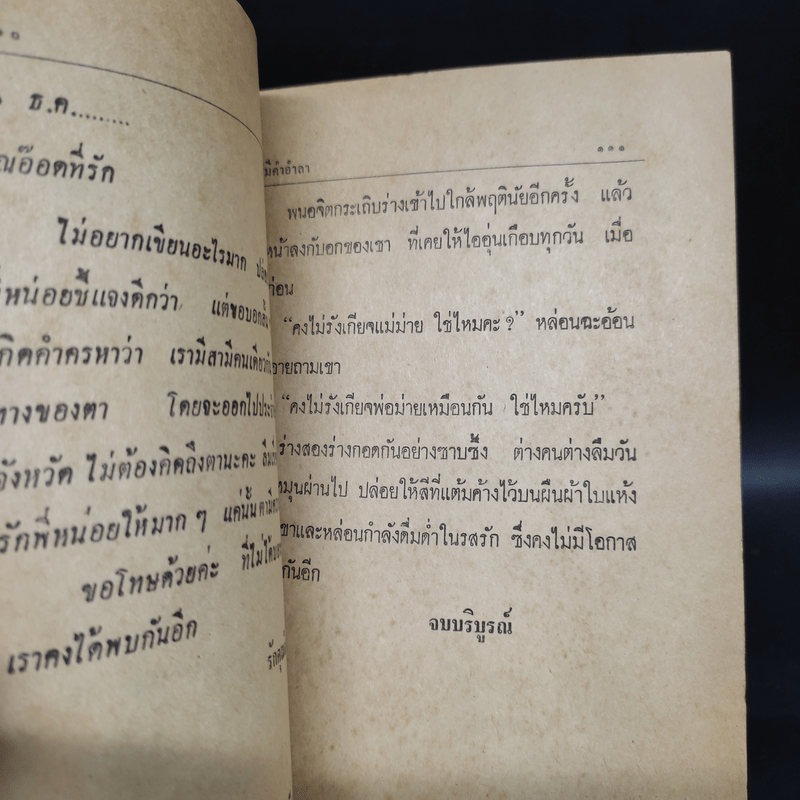 ธ.ค.........
ณอ๊อดที่รัก
ไม่อยากเขียนอะไรมาก
หน่อยชี้แจงดีกว่า แต่ขอบอก
กิดคำครหาว่า เรามีสามีคนเดียว
ทางของตา โดยจะออกไป
จังหวัด ไม่ต้องคิดถึงตานะคะ
รักพี่หน่อยให้มาก ๆ แค่นั้น
ขอโทษด้วยค่ะ ที่ไม่ได้
เราคงได้พบกันอีก
มีคำอำลา ๑๑๑
พนอจิตกระเถิบร่างเข้าไปใกล้พฤตินัยอีกครั้ง แล้ว
หน้าลงกับอกของเขา ที่เคยให้ไออุ่นเกือบทุกวัน เมื่อ
ก่อน
“คงไม่รังเกียจแม่ม่าย ใช่ไหมคะ ?” หล่อนฉะอ้อน
อายถามเขา
“คงไม่รังเกียจพ่อม่ายเหมือนกัน ใช่ไหมครับ”
ร่างสองร่างกอดกันอย่างซาบซึ้ง ต่างคนต่างลืมวัน
หมุนผ่านไป ปล่อยให้สีที่แต้มค้างไว้บนผืนผ้าใบแห้ง
ขาและหล่อนกำลังดื่มด่ำในรสรัก ซึ่งคงไม่มีโอกาส
กันอีก
จบบริบูรณ์